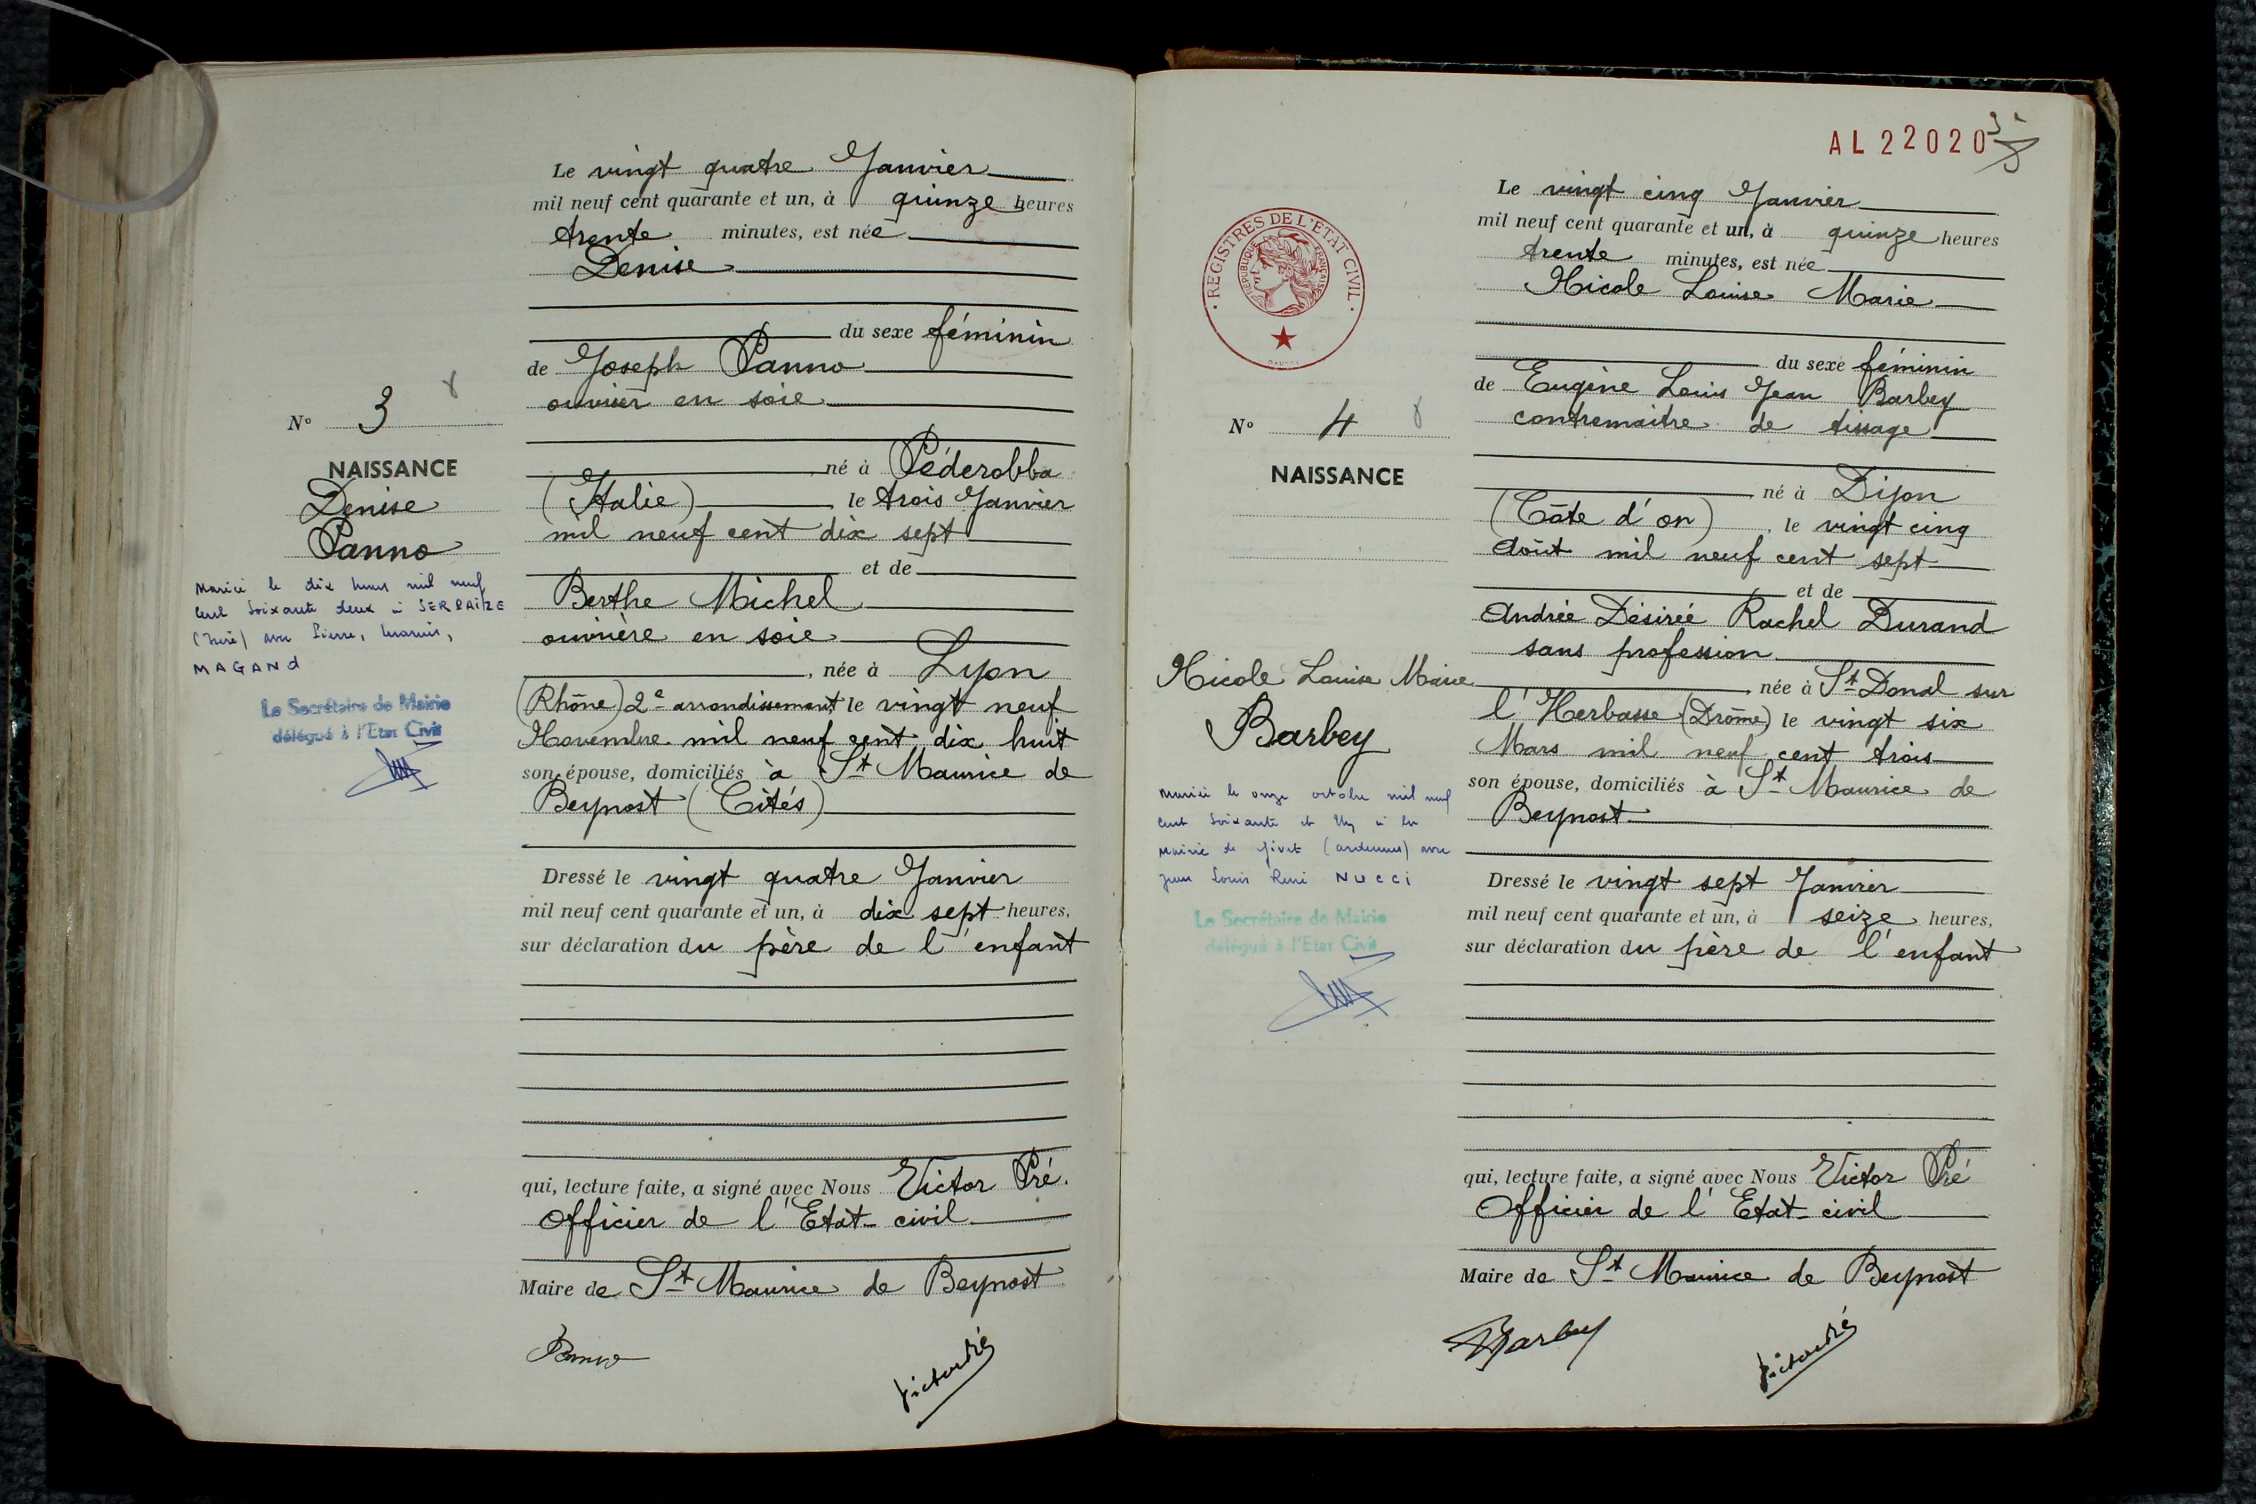 Le vingt quatre Janvier
mil neuf cent quarante et un, à quinze heures
trente minutes, est née
Denise
du sexe féminin
de Joseph Panno
ouvrier en soie
né à Péderobba
(Italie) le trois Janvier
mil neuf cent dix sept
et de
Berthe Michel
ouvrière en soie
, née à Lyon
(Rhône) 2e arrondissement le vingt neuf
Novembre mil neuf cent dix huit
son épouse, domiciliés à St Maurice de
Beynost (Cités)
Dressé le vingt quatre Janvier
mil neuf cent quarante et un, à dix sept heures,
sur déclaration du père de l'enfant
qui, lecture faite, a signé avec Nous Victor Pré
Officier de l'Etat-civil
Maire de St Maurice de Beynost
Panno
Victor Pré
No 3
NAISSANCE
Denise
Panno
Mariée le dix mars mil neuf
cent soixante deux à SERPAIZE
(Isère) avec Pierre,
MAGAND
Le Secrétaire de Mairie
délégué à l'Etat Civil
AL 22020
Le vingt cinq Janvier
mil neuf cent quarante et un, à quinze heures
trente minutes, est née
Nicole Louise Marie
du sexe féminin
de Eugène Louis Jean Barbey
contremaitre de tissage
né à Dijon
(Côte d'or), le vingt cinq
Août mil neuf cent sept
et de
Andrée Désirée Rachel Durand
sans profession
, née à St Donat sur
l'Herbasse (Drôme) le vingt six
Mars mil neuf cent trois
son épouse, domiciliés à St Maurice de
Beynost
Dressé le vingt sept Janvier
mil neuf cent quarante et un, à seize heures,
sur déclaration du père de l'enfant
qui, lecture faite, a signé avec Nous Victor Pré
Officier de l'Etat-civil
Maire de St Maurice de Beynost
Barbey
Victor Pré
REGISTRES DE L'ETAT CIVIL
REPUBLIQUE FRANÇAISE
No 4
NAISSANCE
Nicole Louise Marie
Barbey
Mariée le onze octobre mil neuf
cent soixante et un à la
mairie de Givet (ardennes) avec
Jean Louis René NUCCI
Le Secrétaire de Mairie
délégué à l'Etat Civil